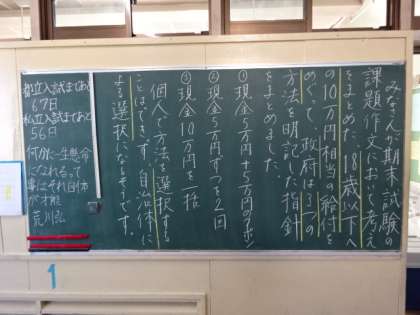 みなさんが期末試験の
課題作文において考え
をまとめた、18歳以下へ
の10万円相当の給付を
めぐって、政府は3つの
方法を明記した指針
をまとめました。
①現金5万円+5万円のクーポン
②現金5万円ずつを2回
③現金10万円を一括
個人で方法を選択する
ことはできず、自治体に
よる選択になるそうです。
都立入試まであと
67日
私立入試まであと
56日
何かに一生懸命
になれるって
事はそれ自体
が才能
荒川弘
1